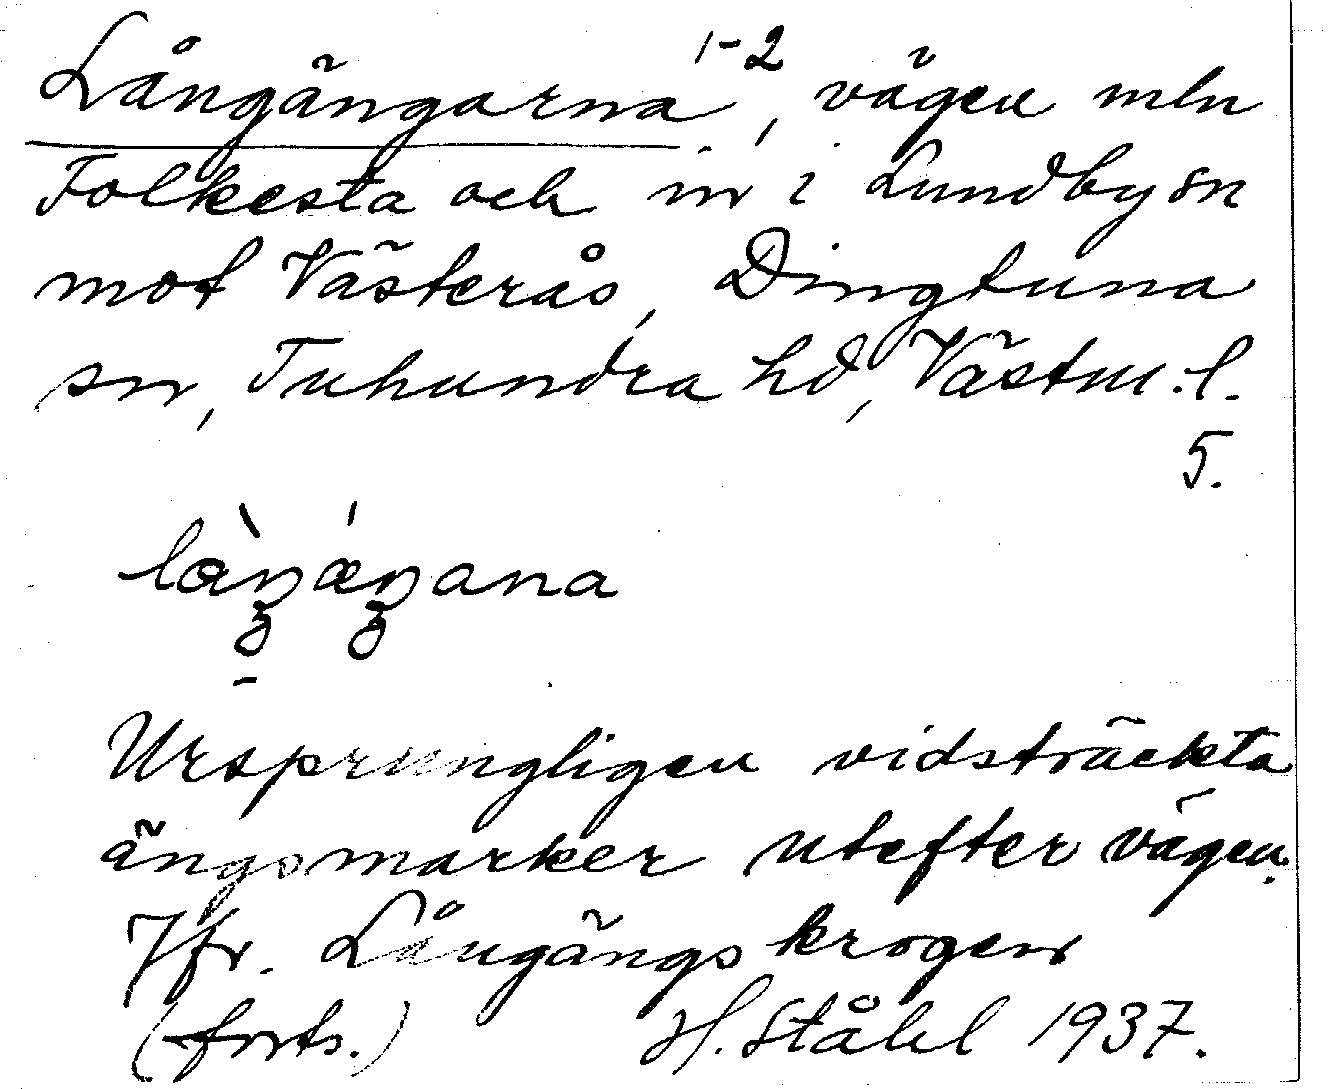 Långängarna 1-2, vägen mln
Folkesta och in i Lundby sn
mot Västerås, Dingtuna
sn, Tuhundra hd, Västm.l.
5.
Ursprungligen vidsträckta
ängsmarker utefter vägen.
Jfr. Långängskrogen
(forts.) H. Ståhl 1937.